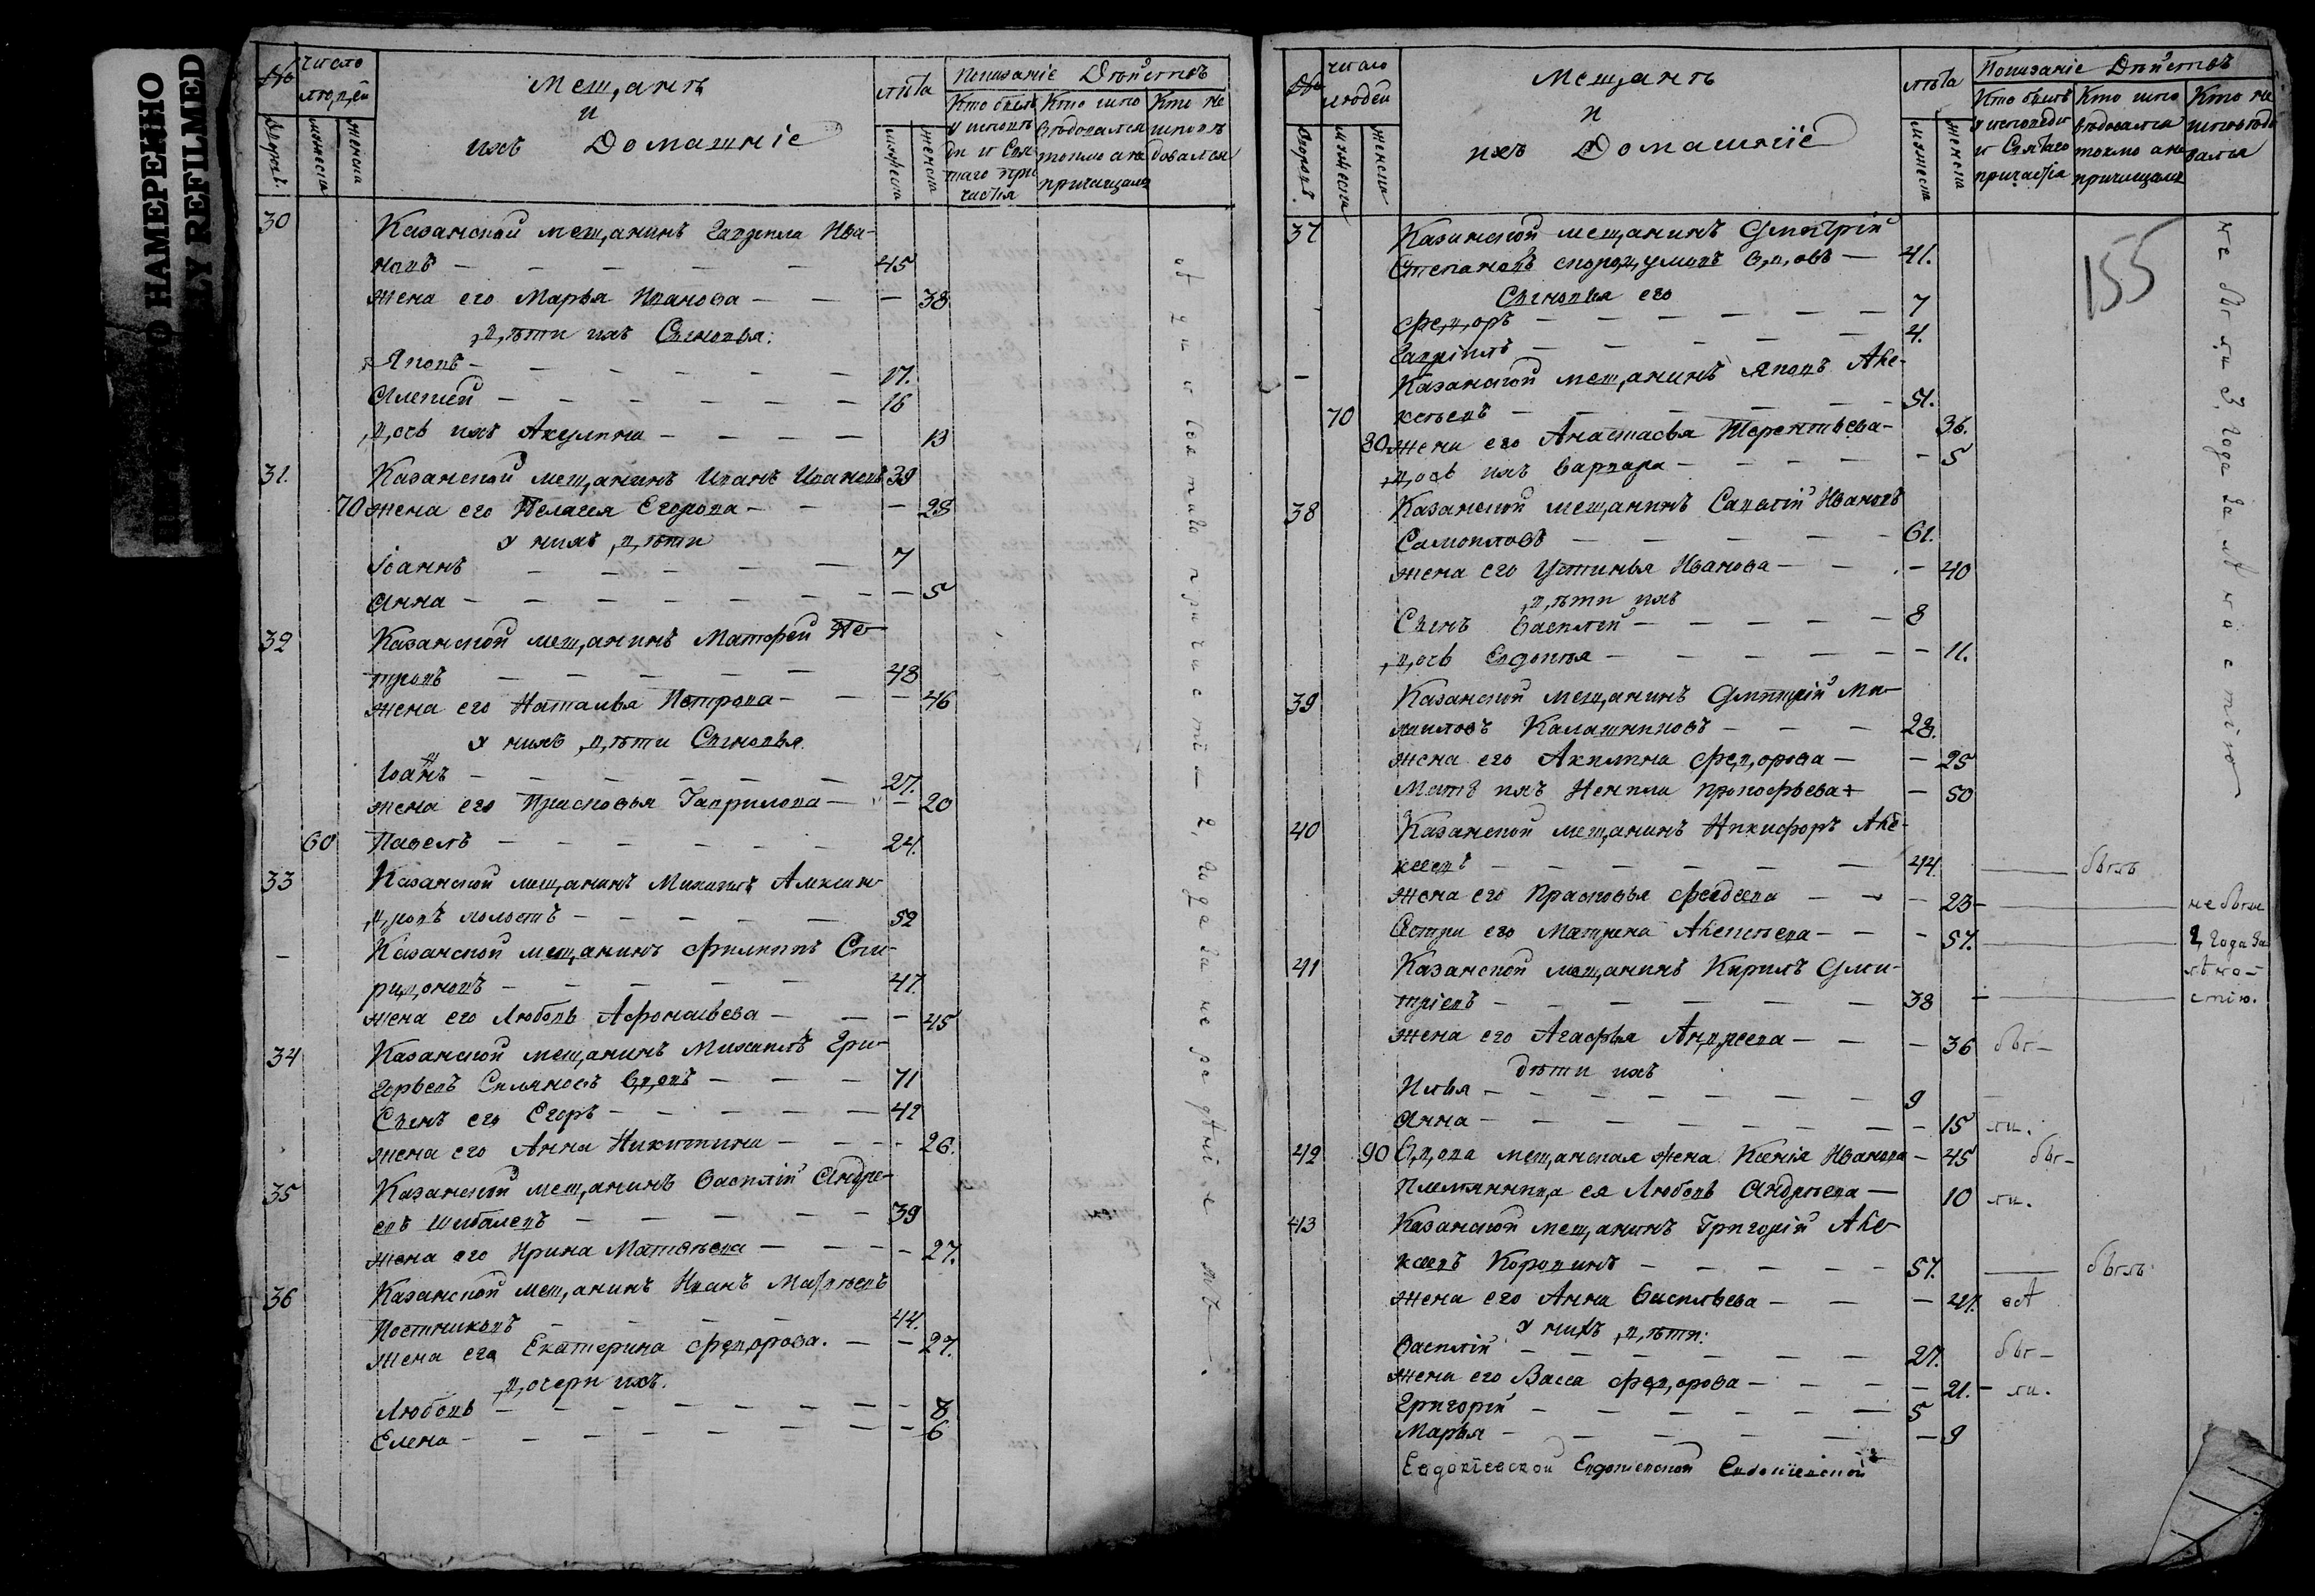 НАМЕРЕННО
LY REFILMED
№
число
людей
Мещанъ
и
ихъ Домашніе
лѣта
Показаніе Действъ
Дворовъ.
мужеска
женска
мужеска
женска
Кто былъ
у исповѣ
ди и Свя
таго при
частія
Кто испо
вѣдовался
токмо а не
причащался
Кто не
исповѣ
довался
30
Казанской мещанинъ Гаврила Ива-
новъ 45
жена его Марья Иванова 38
дѣти ихъ Сыновья:
Яковъ 17.
Алексей 16
дочь ихъ Акулина 13
31. Казанской мещанинъ Иванъ Ивановъ 39
70 жена его Пелагея Егорова 28
у нихъ дѣти
Іоаннъ 7
Анна 5
32 Казанской мещанинъ Матфей Пе-
тровъ 48
жена его Наталья Петрова 46
у нихъ дѣти Сыновья.
Іоанъ 27.
жена его Прасковья Гаврилова 20
60 Павелъ 24.
33 Казанской мещанинъ Михаилъ Алексан-
дровъ холостъ 52
Казанской мещанинъ Филиппъ Спи-
ридоновъ 47.
жена его Любовь Афонасьева 45
34 Казанской мещанинъ Михаилъ Гри-
горьевъ вдовъ 71
Сынъ его Егоръ 42
жена его Анна Никитина 26.
35 Казанской мещанинъ Василій Андре-
евъ Шибалевъ 39
жена его Ирина Матвѣева 27.
36 Казанской мещанинъ Иванъ Матвѣевъ
Постниковъ 44.
жена его Екатерина Федорова. 27.
дочери ихъ.
Любовь 8
Елена 6
святаго причастія 2, года за не радѣніемъ
№
число
людей
Мещанъ
и
ихъ Домашніе
лѣта
Показаніе Действъ
Дворовъ.
мужеска
женска
мужеска
женска
Кто былъ
у исповеди
и Святаго
причастія
Кто испо
вѣдовался
токмо а не
причащался
Кто не
исповѣдо
вался
155
37 Казанской мещанинъ Дмитрій
Степановъ вдовъ 41.
Сыновья его
Федоръ 7
Гаврілъ 4.
Казанской мещанинъ Яковъ Але-
70 ксѣевъ 51.
80 жена его Анастасья Терентьева 36.
дочь ихъ Варвара 5
38 Казанской мещанинъ Савелій Ивановъ
Самойловъ 61.
жена его Устинья Иванова 40
дѣти ихъ
Сынъ Василей 8
дочь Евдокія 11.
39 Казанской мещанинъ Дмитрій Ми-
хайловъ Калашниковъ 28.
жена его Акилина Федорова 25
Мать ихъ Ненила Прокофьева 50
40 Казанской мещанинъ Никифоръ Але-
ксеевъ 44. былъ
жена его Прасковья Федосеева 23 не были
Сестра его Матрена Алексѣева 57. 2, года за
41 Казанской мещанинъ Кирилъ Дми- лѣно-
тріевъ 38 стію.
жена его Агафья Андреева 36 бы-
дѣти ихъ
Илья 9
Анна 15 ли.
42 90 Вдова мещанская жена Ксенія Иванова 45 бы-
Племянница ея Любовь Андреева 10 ли.
43 Казанской мещанинъ Григорій Але-
ксеевъ Коровинъ 57. былъ
жена его Анна Васильева 47.
у нихъ дѣти:
Василій 27. бы-
жена его Васса Федорова 21. ли.
Григорій 5
Марья 9
Евдокіевской Евдокіевской Евдокіевской
не были 3, года за лѣностію